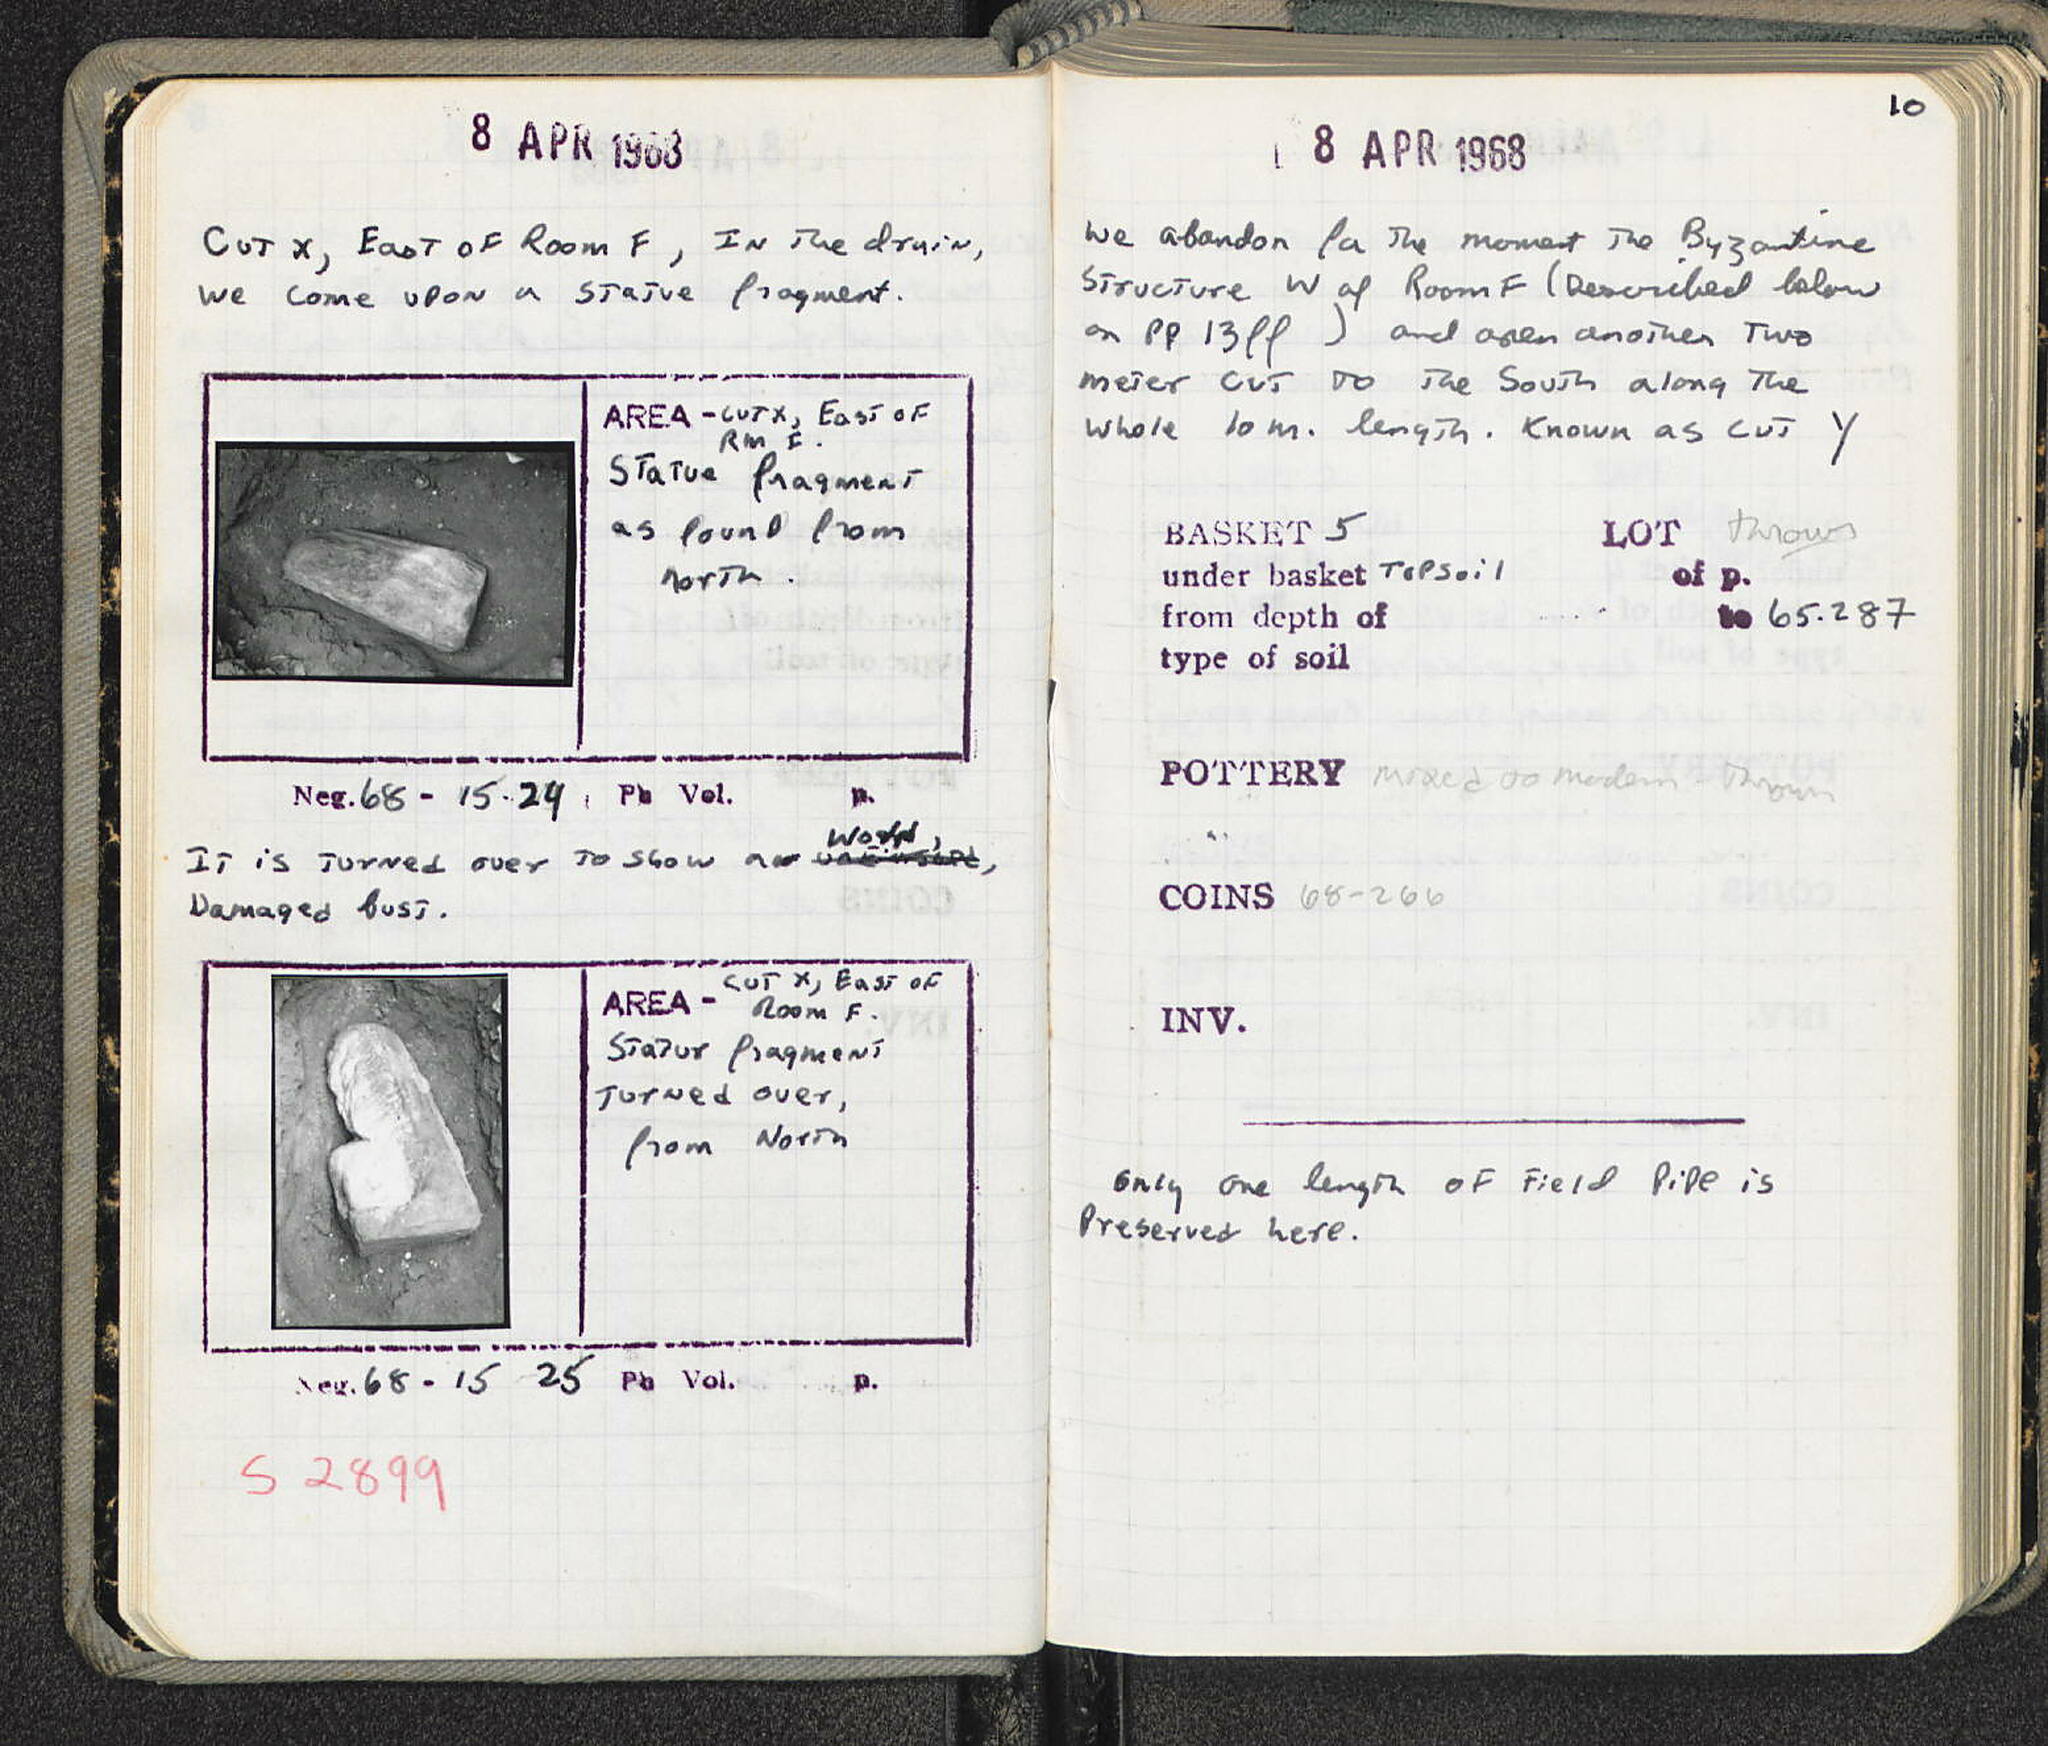 8 APR 1968
Cut x, East of Room F, In the drain,
we come upon a statue fragment.
AREA - cut x, East of
Rm F.
Statue fragment
as found from
north.
Neg. 68 - 15 - 24 Ph Vol. p.
worn,
It is turned over to show a
Damaged bust.
AREA - cut x, East of
Room F.
Statue fragment
turned over,
from North
Neg. 68 - 15 25 Ph Vol. p.
S 2899
10
8 APR 1968
We abandon for the moment the Byzantine
structure W of Room F (Described below
on pp 13ff ) and open another two
meter cut to the South along the
whole 10 m. length. Known as cut Y
BASKET 5 LOT thrown
under basket Topsoil of p.
from depth of to 65.287
type of soil
POTTERY mixed to modern - thrown
COINS 68-266
INV.
Only one length of field pipe is
preserved here.